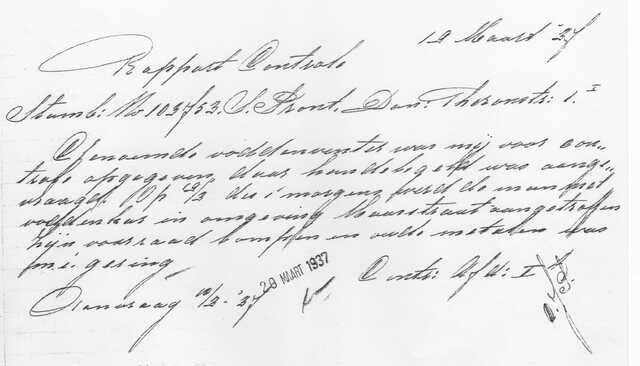 12 Maart '37
Rapport Controle
Stamb: No 103753. S. Pront. Dan: Theronstr: 1. I
Genoemde voddenventer was mij voor con-
trole opgegeven, daar handelsgeld was aange-
vraagd. Op 12/3 des morgens werd de man met
voddenkar in omgeving Maarstraat aangetroffen
Zijn voorraad lompen en oude metalen was
m.i. gering
29 MAART 1937
Contr: Afd: I